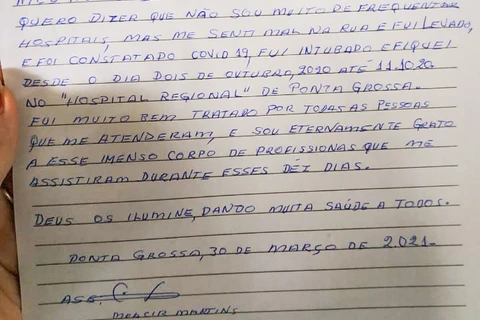 QUERO DIZER QUE NÃO SOU MUITO DE FREQUENTAR
HOSPITAIS, MAS ME SENTI MAL NA RUA E FUI LEVADO,
E FOI CONSTATADO COVID 19, FUI INTUBADO E FIQUEI
DESDE O DIA DOIS DE OUTUBRO, 2020 ATÉ 11.10.20
NO "HOSPITAL REGIONAL" DE PONTA GROSSA.
FUI MUITO BEM TRATADO POR TODAS AS PESSOAS
QUE ME ATENDERAM, E SOU ETERNAMENTE GRATO
A ESSE IMENSO CORPO DE PROFISSIONAS QUE ME
ASSISTIRAM DURANTE ESSES DÉZ DIAS.
DEUS OS ILUMINE, DANDO MUITA SAÚDE A TODOS.
PONTA GROSSA, 30 DE MARÇO DE 2.021-
ASS:
MOACIR MARTINS